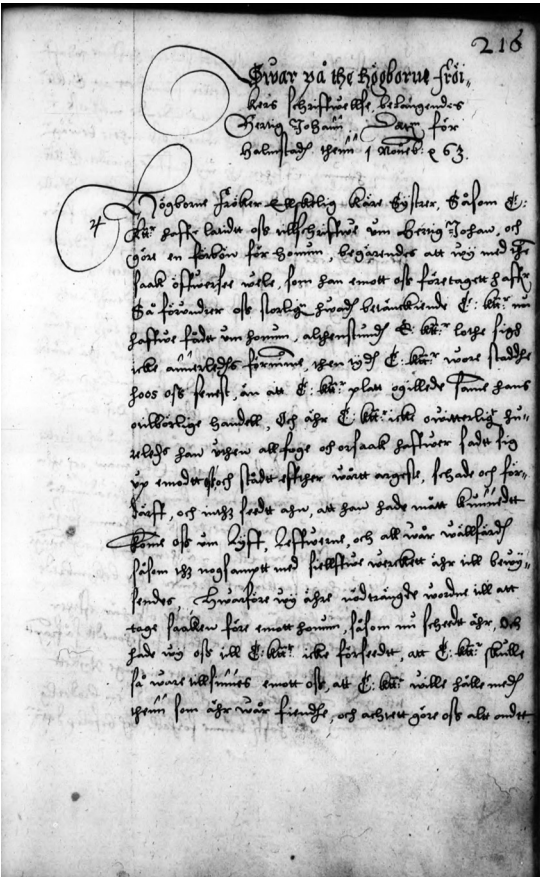 216
Swar på the Högborne Frökers
schrifftvellse, belangendes
Hertig Johann. Datum för
Halmstadh thenn 1 Nouēb: &c 63.
Högborne Fröker Elskelig Käre Syster, Såsom E:
Ktt: haffr latidt oss tillschrifftve um Hertig Johan, och
göre en förbön för honum, begärendes att wij med the
saak öffuersee wele, som han emott oss företagett haffr
Så förundrer oss storlig hwadh betänckiende E: ktt: nu
hafftve fådt um honum, alghenstundh E: ktt: lothe sigh
icke annerledhs förnimme, then tijdh E: ktt: wore staddhe
hoos oss senest, än att E: ktt: platt ogillede samme hans
otillbörlige handell, Och ähr E: ktt: icke owitterligt hureleds
han uthen all foge och orsaak haffwer sadtt sig
up emodtt oss och städtt effther wårtt argeste, schade och fördärff,
och inthz seedt ahn, att han hade mått kunnedtt
komme oss um Lyff, Leffwerne, och all wår wällfärdh
såsom thz nogsamptt med sielfftve wercket ähr till bewijsendes,
Hwarföre wij ähre nödtrångde wordne till att
tage saaken före emott honum, såsom nu scheedt ähr, Och
hade wij oss till E: ktt: icke förseedtt, att E: ktt: skulle
så ware tillsinnes emott oss, att E: ktt: wille hålle medh
thenn som ähr wår fiendhe, och achtett göre oss altt ondtt